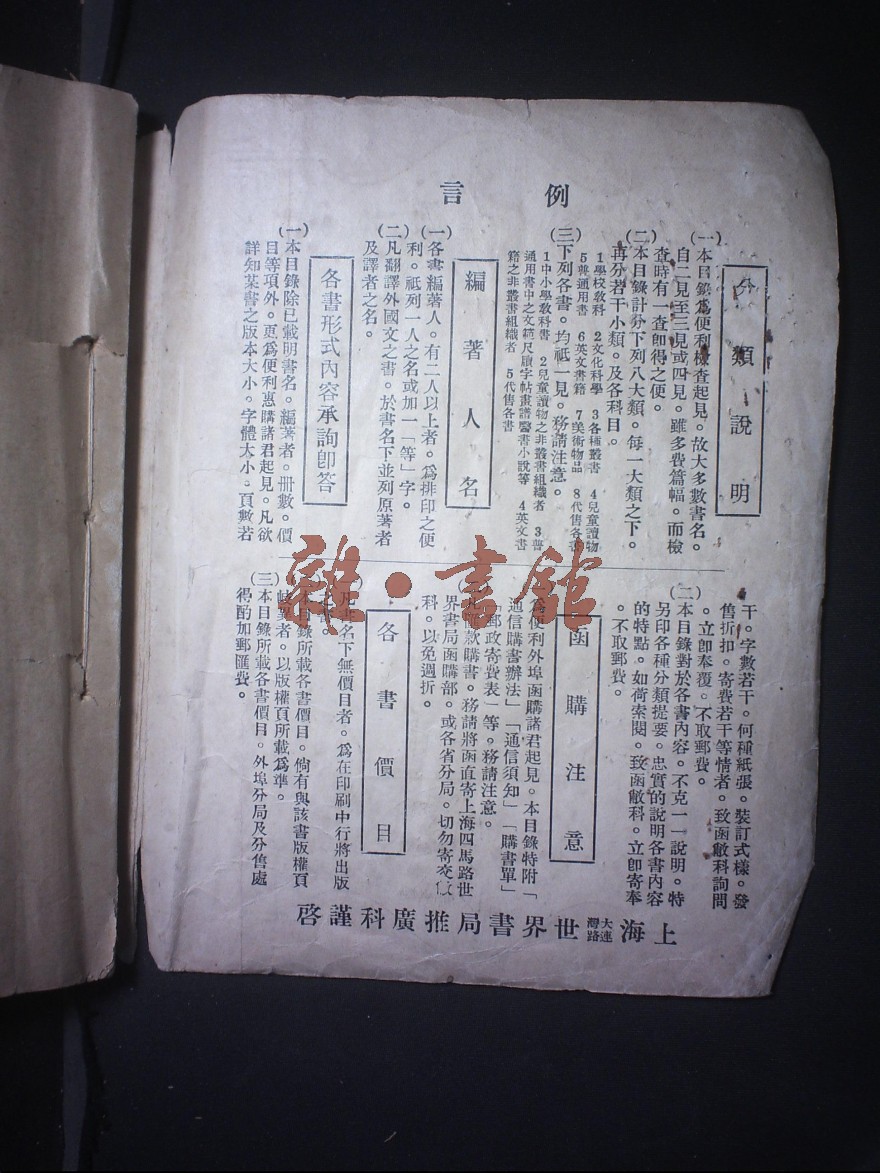 例言
分類說明
(一)本目錄爲便利檢查起見。故大多數書名。
自二見至三見或四見。雖多費篇幅。而檢
查時有一查卽得之便。
(二)本目錄計分下列八大類。每一大類之下。
再分若干小類。及各科目。
1學校敎科 2文化科學 3各種叢書 4兒童讀物
5普通用書 6英文書籍 7美術物品 8代售各書
(三)下列各書。均祇一見。務請注意。
1中小學敎科書 2兒童讀物之非叢書組織者 3普
通用書中之文範尺牘字帖畫譜醫書小說等 4英文書
籍之非叢書組織者 5代售各書
編著人名
(一)各書編著人。有二人以上者。爲排印之便
利。祇列一人之名或加一「等」字。
(二)凡翻譯外國文之書。於書名下並列原著者
及譯者之名。
各書形式內容承詢卽答
(一)本目錄除已載明書名。編著者。冊數。價
目等項外。更爲便利惠購諸君起見。凡欲
詳知某書之版本大小。字體大小。頁數若
干。字數若干。何種紙張。裝訂式樣。發
售折扣。寄費若干等情者。致函敝科詢問
。立卽奉覆。不取郵費。
(二)本目錄對於各書內容。不克一一說明。特
另印各種分類提要。忠實的說明各書內容
的特點。如荷索閱。致函敝科。立卽寄奉
。不取郵費。
函購注意
爲便利外埠函購諸君起見。本目錄特附「
通信購書辦法」「通信須知」「購書單」
「郵政寄費表」等。務請注意。
匯款購書。務請將函直寄上海四馬路世
界書局函購部。或各省分局。切勿寄交敝
科。以免週折。
各書價目
凡書名下無價目者。爲在印刷中行將出版
本目錄所載各書價目。倘有與該書版權頁
歧異者。以版權頁所載爲準。
(三)本目錄所載各書價目。外埠分局及分售處
得酌加郵匯費。
上海大連灣路世界書局推廣科謹啓
雜·書館